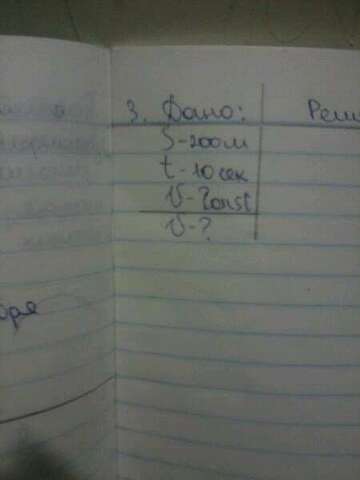 3. Дано: Реш
S-200м
t-10сек
V-const
V-?
ря